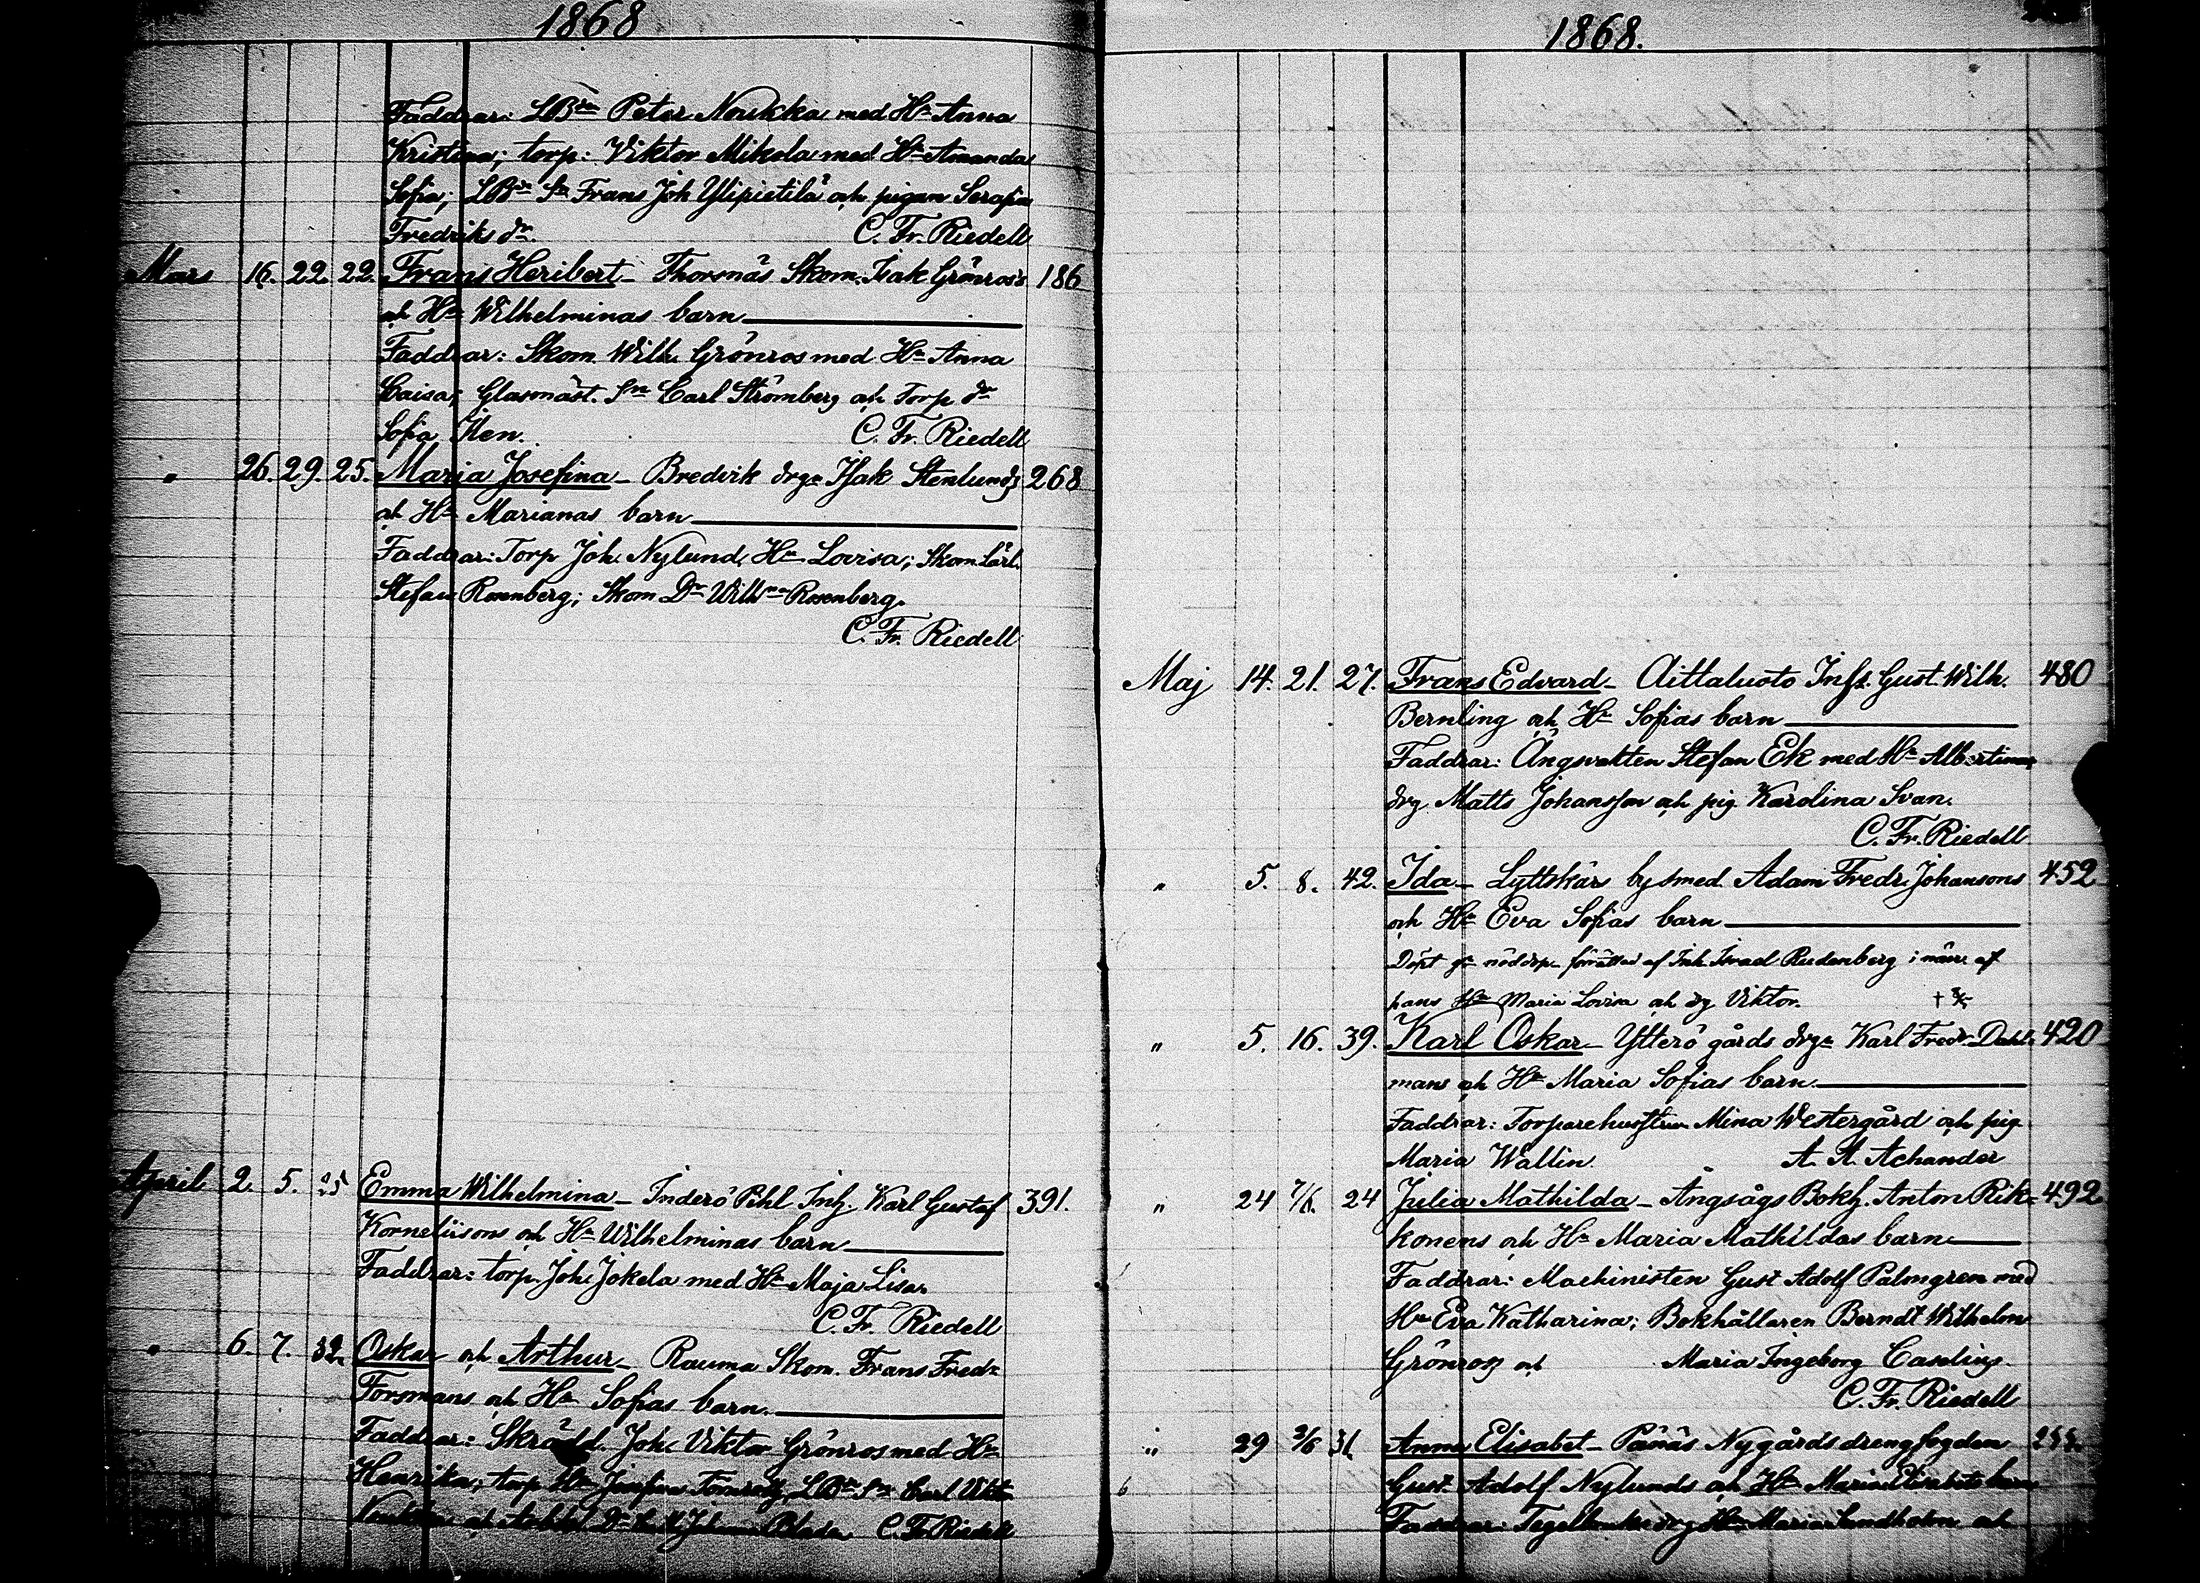 1868
Faddrar: LBdn Peter Noukka med Hu Anna
Kristina; torp: Viktor Mikola med Hu Amanda
Sofia; LBdn Sn Frans Joh Ylipietilä och pigan Serafia
Fredriks dr. C. Fr. Riedell
Mars 16. 22. 22. Frans Heribert - Thorsnäs Skom. Isak Grönros's 186
och Hu Wilhelminas barn
Faddrar: Skom. Wilh. Grönros med Hu Anna
Caisa; Glasmäst. Sn Carl Strömberg och Torp dr
Sofia Sten. C. Fr. Riedell
" 26. 29. 25. Maria Josefina - Bredvik drgn Isak Stenlunds 268
och Hu Marianas barn
Faddrar: Torp Joh. Nylund, Hu Lovisa; Skom. Lärl.
Stefan Rosenberg; Skom Dr Wilhna Rosenberg.
C. Fr. Riedell
April 2. 5. 25 Emma Wilhelmina - Inderö Pihl Inh. Karl Gustaf 391.
Korneliisons och Hu Wilhelminas barn
Faddrar: torp. Joh. Jokela med Hu Maja Lisa.
C. Fr. Riedell
" 6. 7. 32. Oskar och Arthur - Rauma Skom. Frans Fredr
Forsmans och Hu Sofias barn.
Faddrar: Skrädd. Joh. Viktor Grönros med Hu
Henrika; torp Hu Josefina LBdn Sn Carl Viktor
och Dr C. Fr. Riedell
1868.
Maj 14. 21. 27. Frans Edvard - Aittaluoto Inh. Gust. Wilh. 480
Bernling och Hu Sofias barn
Faddrar: Ängsvakten Stefan Ek med Hu Albertina,
drg Matts Johansson och pig. Karolina Svan.
C. Fr. Riedell
" 5. 8. 42. Ida - Lyttskärs by smed Adam Fredr. Johansons 452
och Hu Eva Sofias barn
Döpt gm nöddop förrättad af Inh. Israel Rudenberg i närv. af
hans Hu Maria Lovisa och drg Viktor. †
" 5. 16. 39. Karl Oskar - Ytterö gårds drgn Karl Fredr. Dahl- 420
mans och Hu Maria Sofias barn
Faddrar: Torparehustrun Mina Westergård och pig.
Maria Wallin. A. A. Achander
" 24 7/6. 24 Julia Mathilda - Ångsågs Bokh. Anton Rik- 492
konens och Hu Maria Mathildas barn
Faddrar: Machinisten Gust Adolf Palmgren med
Hu Eva Katharina; Bokhållaren Berndt Wilhelm
Grönros och Maria Ingeborg Caselius.
C. Fr. Riedell
" 29 31 Anna Elisabet - Pånäs Nygårds drengfogden
Gust Adolf Nylunds och Hu Maria Elisabets barn
Faddrar: drg Hu Maria Sundholm och